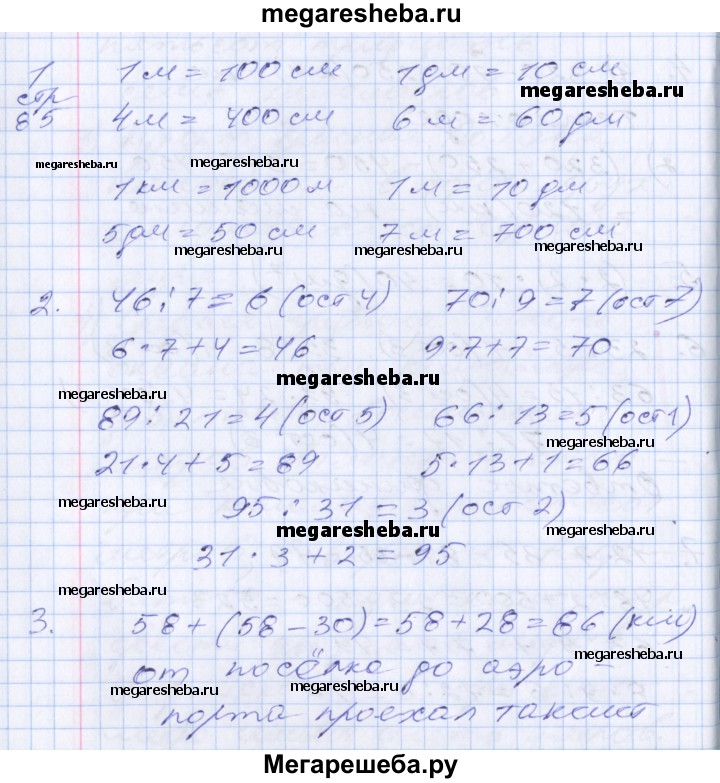 megaresheba.ru
1 1 м = 100 см 1 дм = 10 см
стр megaresheba.ru
85 4 м = 400 см 6 м = 60 дм
megaresheba.ru megaresheba.ru megaresheba.ru
1 км = 1000 м 1 м = 10 дм
5 дм = 50 см 7 м = 700 см
megaresheba.ru megaresheba.ru
2. 46 : 7 = 6 (ост 4) 70 : 9 = 7 (ост 7)
6 · 7 + 4 = 46 9 · 7 + 7 = 70
megaresheba.ru megaresheba.ru
89 : 21 = 4 (ост 5) 66 : 13 = 5 (ост 1)
megaresheba.ru
21 · 4 + 5 = 89 5 · 13 + 1 = 66
megaresheba.ru 95 : 31 = 3 (ост 2) megaresheba.ru
megaresheba.ru
31 · 3 + 2 = 95
megaresheba.ru megaresheba.ru
3. 58 + (58 - 30) = 58 + 28 = 86 (км)
от посёлка до аэро -
megaresheba.ru megaresheba.ru megaresheba.ru
порта проехал таксист
Мегарешеба.ру